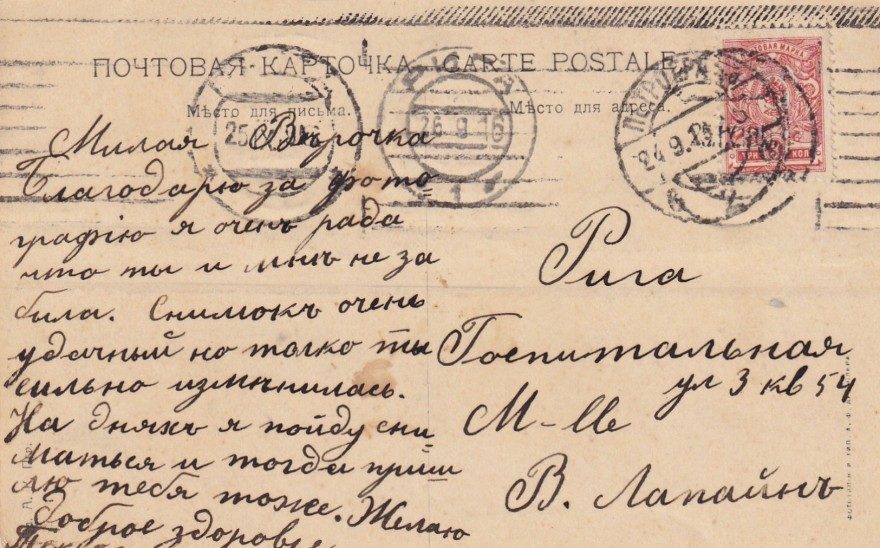 ПОЧТОВАЯ КАРТОЧКА. CARTE POSTALE
Мѣсто для письма.
Мѣсто для адреса.
25
26 9 16
1
24.9.
ТРИ КОП
Милая Вѣрочка
Благодарю за фото
графію я очень рада
что ты и мнѣ не за
била. Снимокъ очень
удачный но толко ты
сильно измѣнилась.
На дняхъ я пойду сни
маться и тогда приш
лю тебя тоже. Желаю
Доброе здоровье
Рига
Госпитальная
ул 3 кв 54
M-lle
В. Лапайнъ